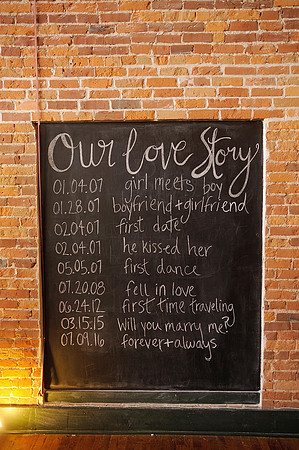 Our love Story
01.04.07 girl meets boy
01.28.07 boyfriend+girlfriend
02.04.07 first date
02.04.07 he kissed her
05.05.07 first dance
07.20.08 fell in love
06.24.12 first time traveling
03.15.15 Will you marry me?
07.09.16 forever+always